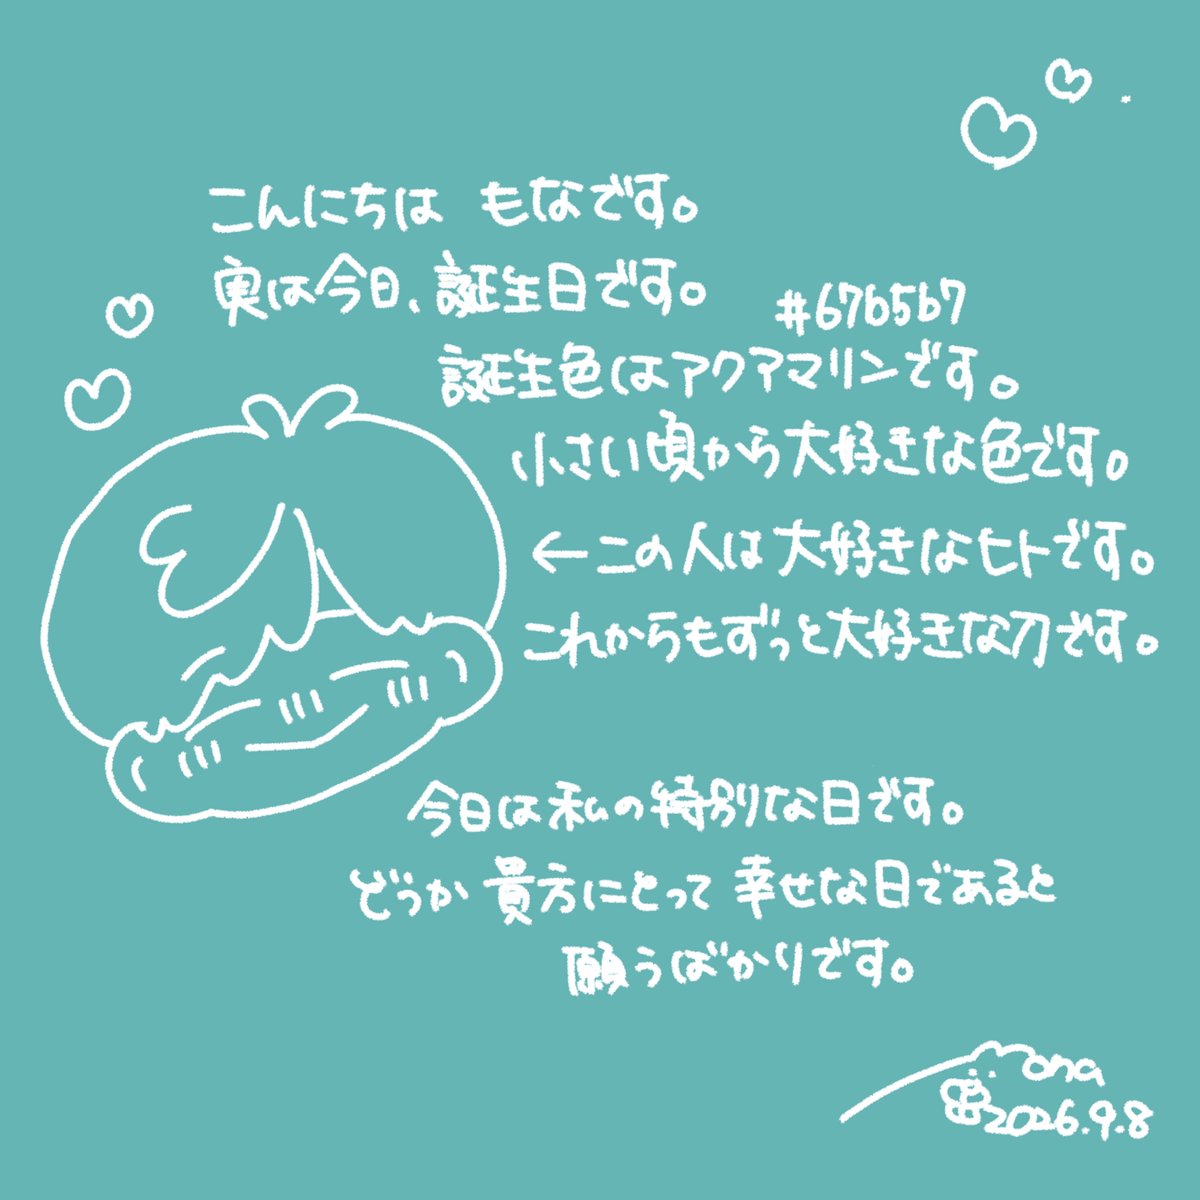 こんにちは もなです。
実は今日、誕生日です。
#67b5b7
誕生色はアクアマリンです。
小さい頃から大好きな色です。
←この人は大好きなヒトです。
これからもずっと大好きな刀です。
今日は私の特別な日です。
どうか 貴方にとって 幸せな日であると
願うばかりです。
mona
2026.9.8